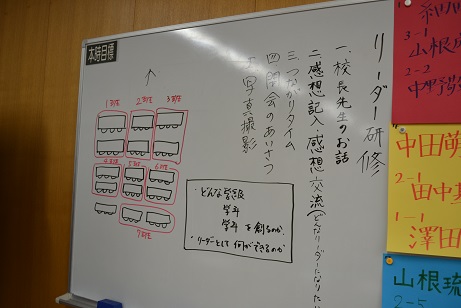 本時目標
リーダー研修
一、校長先生のお話
二、感想記入・感想交流(どんなリーダーになりたい
三、つながりタイム
四、閉会のあいさつ
五、写真撮影
1班 2班 3班
4班 5班 6班
7班
・どんな学級
学年
学年を創るのか
・リーダーとして何ができるのか
3-1
山根
2-2
中野
中田萌
2-1
田中
1-1
澤田
山根琉
2-5